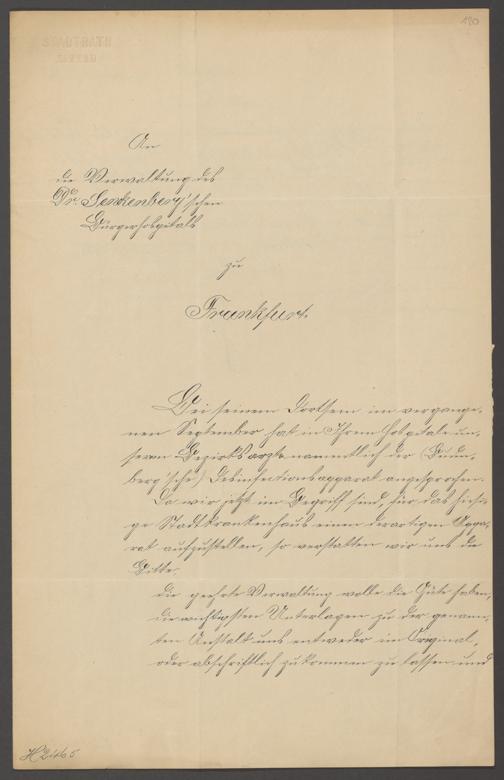 180
STADTRATH
An
die Verwaltung des
Dr. Senkenberg'schen
Bürgerhospitals
zu
Frankfurt.
Bei seinem Dortsein im vergange-
nen September hat in Ihrem Hospitale un-
seren Bezirksarzt namentlich der
berg'sche) Desinfectionsapparat angesprochen.
Da wir jetzt im Begriff sind, für das hiesi-
ge Stadtkrankenhaus einen derartigen Appa-
rat aufzustellen, so verstatten wir uns die
Bitte:
die geehrte Verwaltung wolle die Güte haben,
die wichtigsten Unterlagen zu der genann-
ten Anstalt uns entweder im Original,
oder abschriftlich zukommen zu lassen und